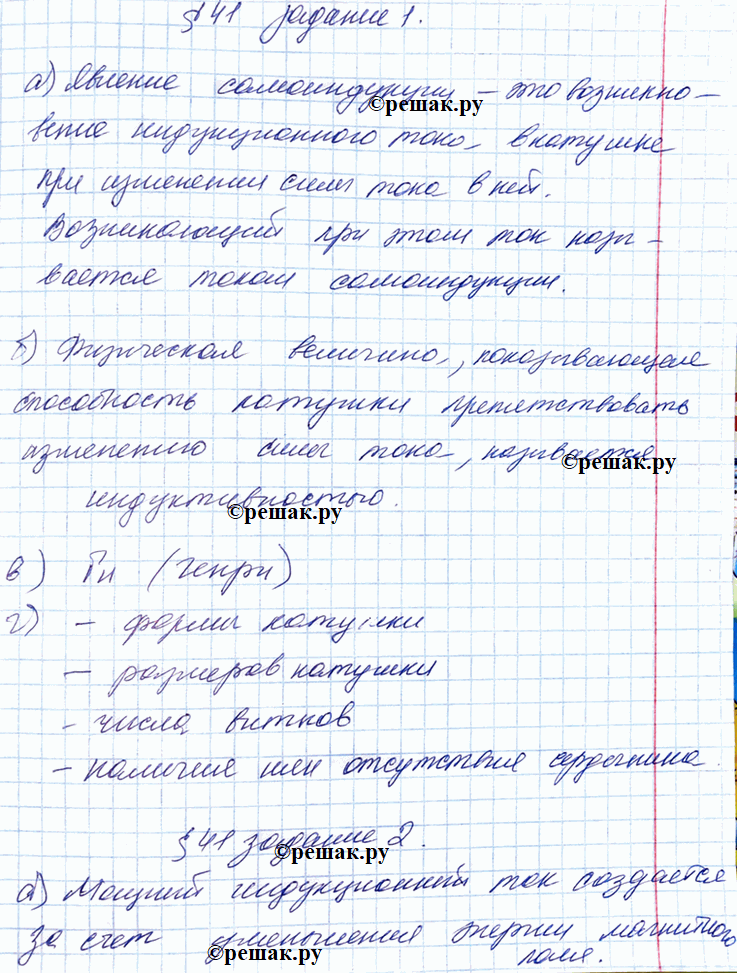 §41 задание 1.
а) Явление самоиндукции – это возникно–
вение индукционного тока в катушке
при изменении силы тока в ней.
Возникающий при этом ток назы–
вается током самоиндукции.
©решак.ру
б) Физическая величина, показывающая
способность катушки препятствовать
изменению силы тока, называется
©решак.ру
индуктивностью.
©решак.ру
в) Гн (Генри)
г) – формы катушки
– размеров катушки
– числа витков
– наличия или отсутствия сердечника
§41 задание 2.
©решак.ру
а) Мощный индукционный ток создается
за счет уменьшения энергии магнитного
поля.
©решак.ру